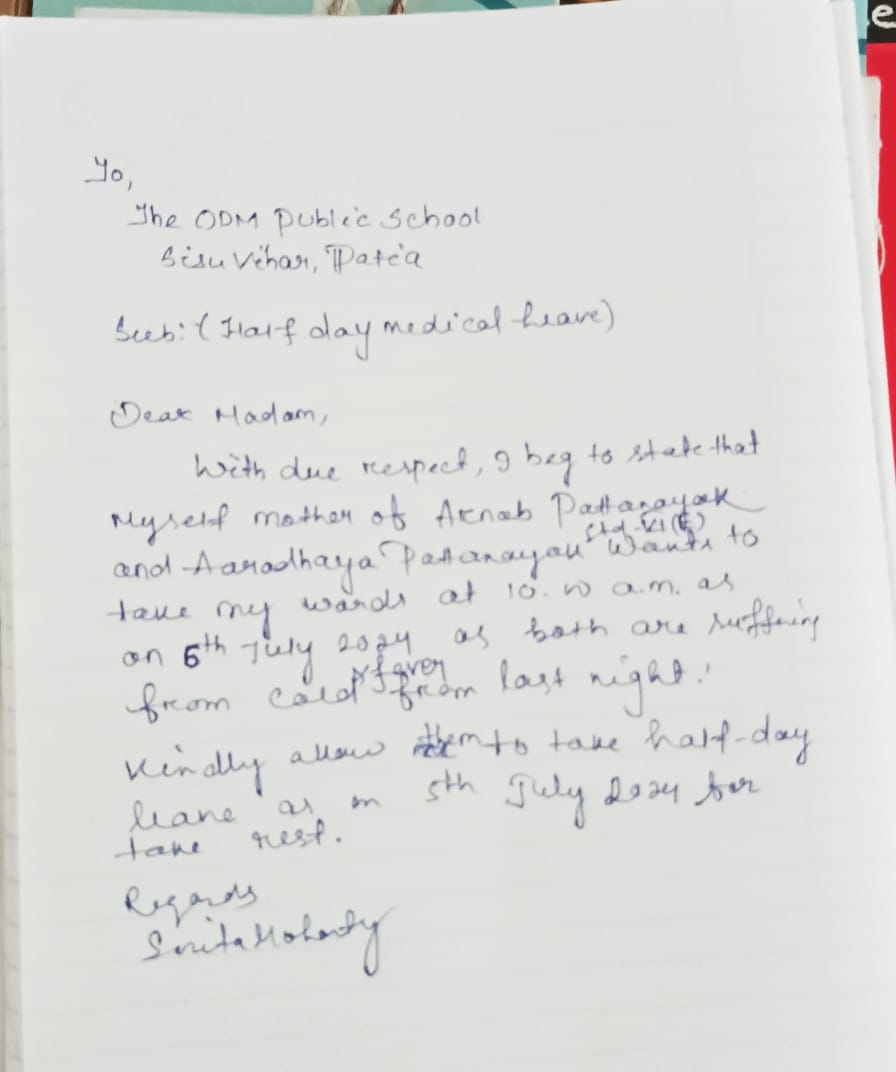 e
To,
The ODM Public School
Sisu Vihar, Patia
Sub: (Half day medical leave)
Dear Madam,
With due respect, I beg to state that
Myself mother of Arnab Pattanayak
and Aaradhaya Pattanayak Std-VI(E) wants to
take my wards at 10.10 a.m. as
on 5th July 2024 as both are suffering
from cold & fever from last night.
Kindly allow them to take half-day
leave as on 5th July 2024 for
take rest.
Regards
Smita Mohanty